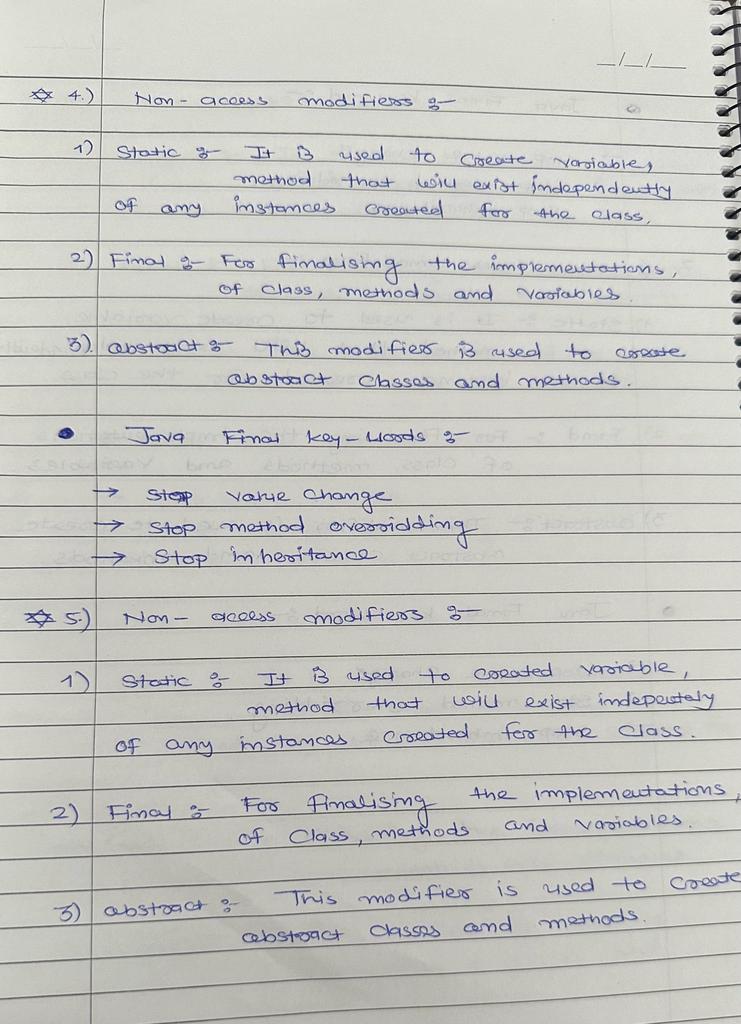 _/_/_
✡ 4.) Non-access modifiers :-
1) Static :- It is used to create variable,
method that will exist independently
of any instances created for the class.
2) Final :- For finalising the implementations,
of class, methods and variables.
3). abstract :- This modifier is used to create
abstract classes and methods.
• Java Final key-words :-
→ Stop value change
→ Stop method overridding
→ Stop inheritance
✡ 5.) Non-access modifiers :-
1) Static :- It is used to created variable,
method that will exist indepeutely
of any instances created for the class.
2) Final :- For finalising the implementations,
of class, methods and variables.
3) abstract :- This modifier is used to create
abstract classes and methods.